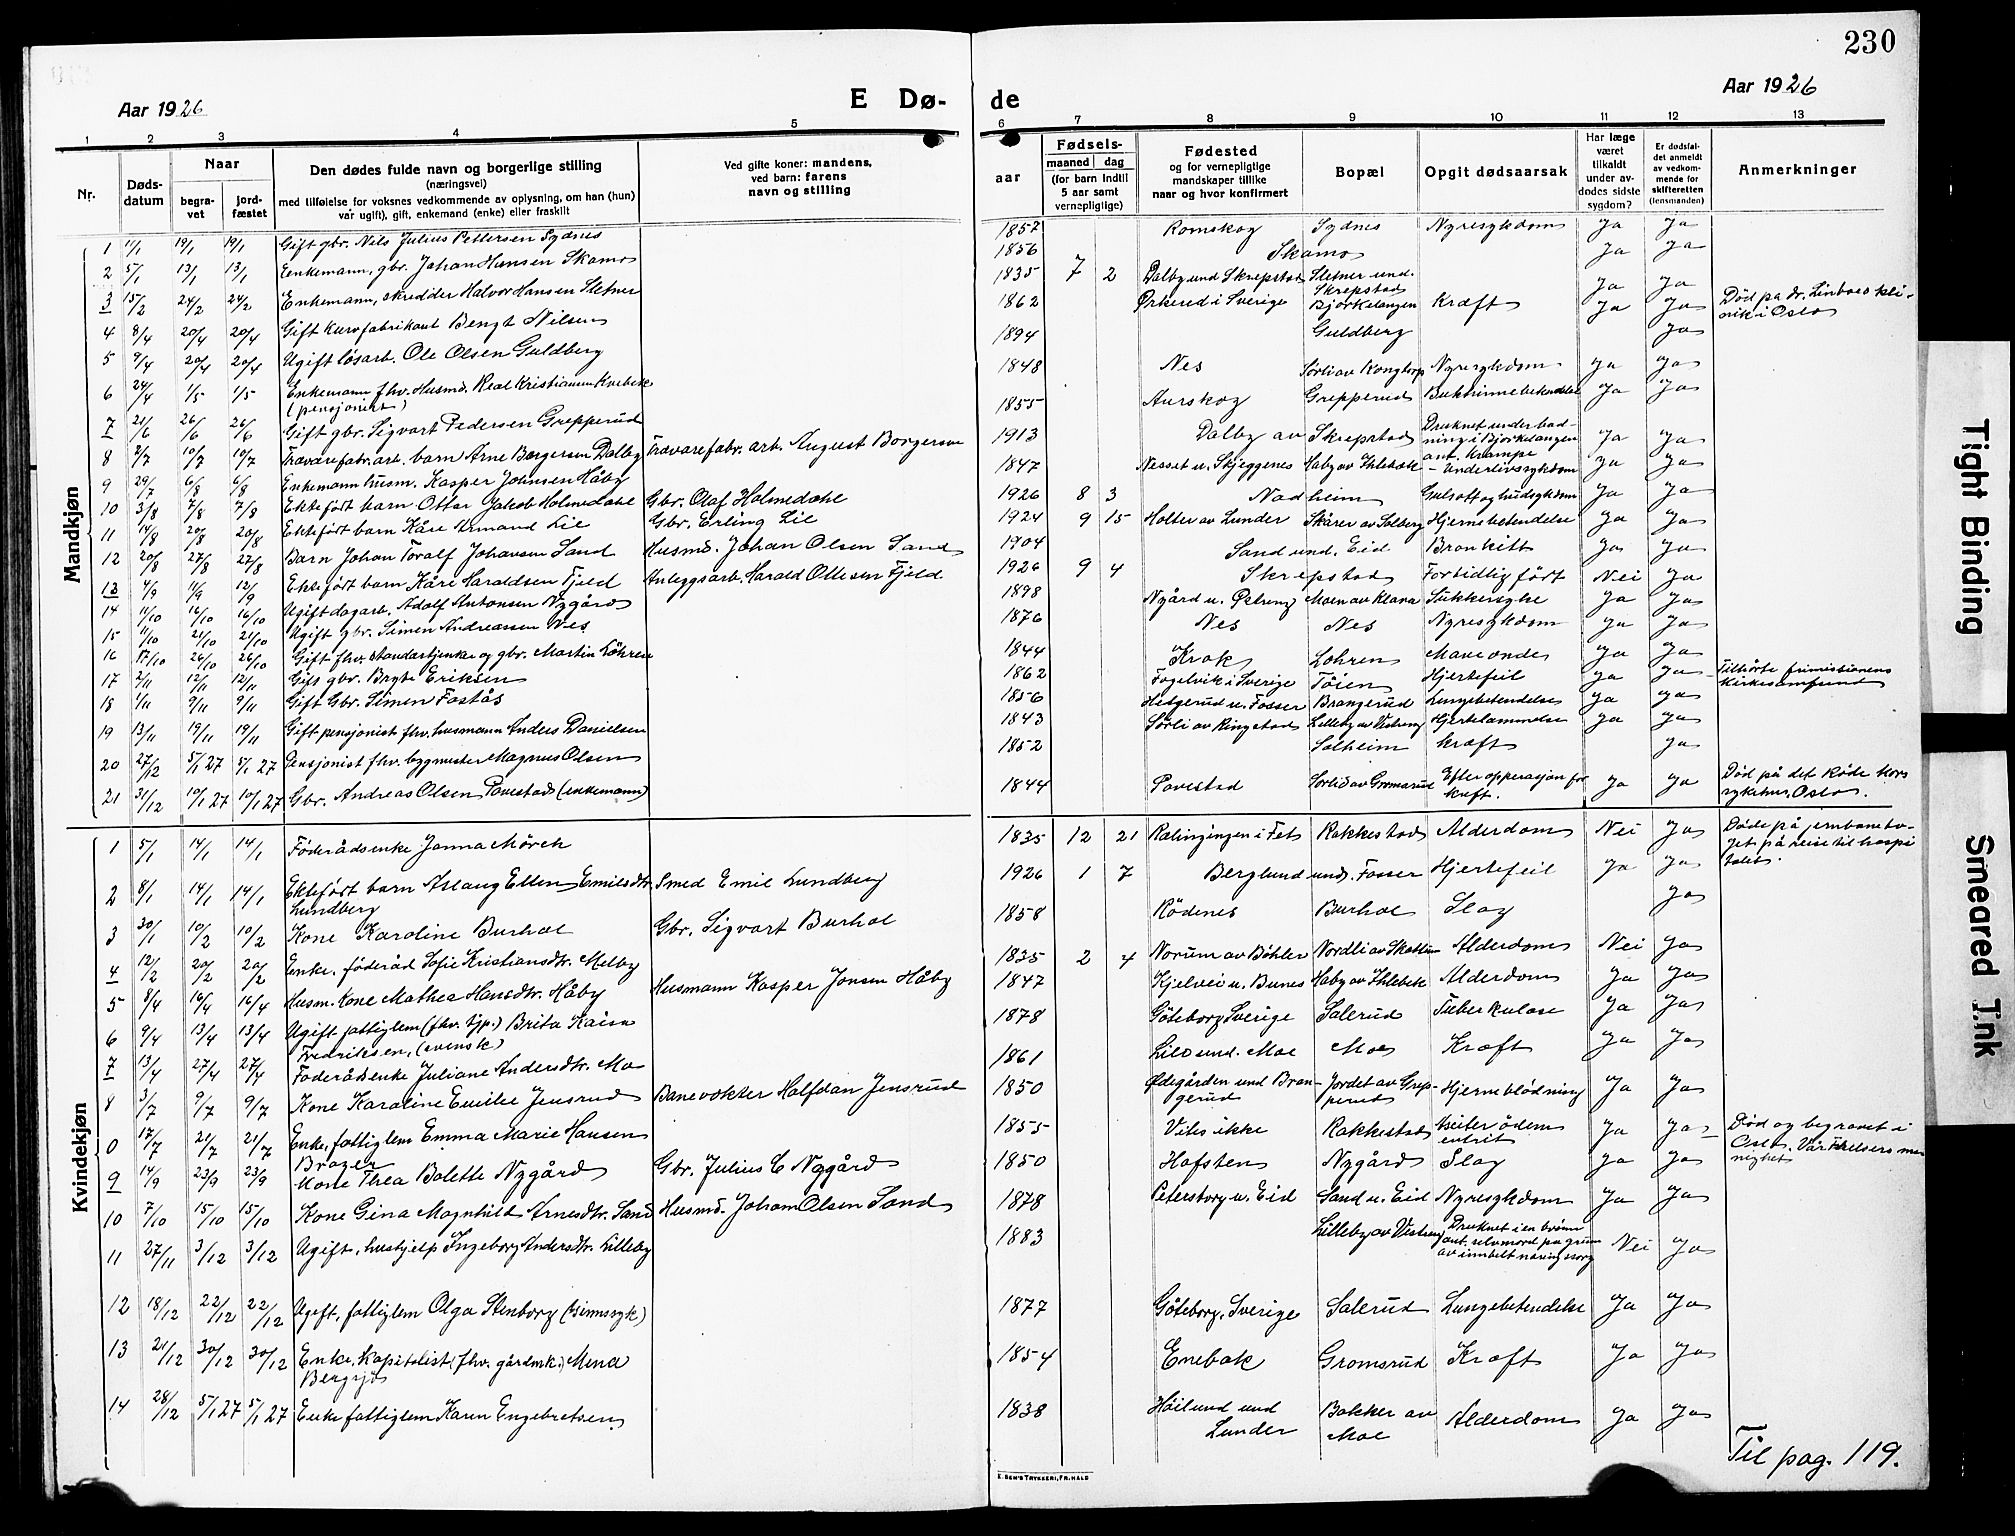 230
Aar 1926
E Dø-
de
Aar 1926
1 2 3 4 5 6 7 8 9 10 11 12 13
Nr.
Døds-
datum
Naar
begra-
vet
jord-
fæstet
Den dødes fulde navn og borgerlige stilling
(næringsvei)
med tilføielse for voksnes vedkommende av oplysning, om han (hun)
var ugift), gift, enkemand (enke) eller fraskilt
Ved gifte koner: mandens,
ved barn: farens
navn og stilling
Fødsels-
aar
maaned dag
(for barn indtil
5 aar samt
vernepligtige)
Fødested
og for vernepligtige
mandskaper tillike
naar og hvor konfirmert
Bopæl
Opgit dødsaarsak
Har læge
været
tilkaldt
under av-
dødes sidste
sygdom?
Er dødsfal-
det anmeldt
av vedkom-
mende for
skifteretten
(lensmanden)
Anmerkninger
Mandkjøn
1 11/1 19/1 19/1 Gift gbr. Nils Julius Pettersen Sydnes 1857 Romskog Sydnes Nyresykdom Ja Ja
2 5/1 13/1 13/1 Enkemann, gbr. Johan Hansen Skamo 1856 Skamo Ja Ja
3 15/2 24/2 24/2 Enkemann, skredder Halvor Hansen Sletner 1835 7 2 Dalby und Skrepstad Sletner und. Skrepstad Ja Ja
4 8/4 20/4 20/4 Gift kurvfabrikant Bengt Nilsen 1862 Ørkerud i Sverige Bjørkelangen Kræft Ja Ja Død på dr. kli-
nik i Oslo
5 9/4 20/4 20/4 Ugift løsarb. Ole Olsen Guldberg 1894 Guldberg Ja
6 24/4 1/5 1/5 Enkemann fhv. Husmd. Kristiansen
(pensjonist) 1848 Nes Sørli av Kongtorp Nyresykdom Ja Ja
7 21/6 26/6 26/6 Gift gbr. Sigvart Pedersen Grepperud 1855 Aurskog Grepperud Bukhinnebetendelse Ja Ja
8 2/7 10/7 10/7 Trævarefabr. arb. barn Arne Borgersen Dalby Trævarefabr. arb. August Borgersen 1913 Dalby av Skrepstad Druknet under bad-
ning i Bjørkelangen
ant. krampe Ja Ja
9 29/7 6/8 6/8 Enkemann husm. Kasper Johnsen Håby 1847 Nesset u. Skjeggenes Haby av Ihlebæk Underlivssykdom Ja Ja
10 3/8 7/8 7/8 Ektefødt barn Ottar Jakob Holmedahl Gbr. Olaf Holmedahl 1926 8 3 Nadheim Gulsott og hudsykdom Ja Ja
11 14/8 20/8 20/8 Ektefødt barn Kåre Armand Lie Gbr. Erling Lie 1924 9 15 Holter av Lunder Skårer av Solberg Hjernebetendelse Ja Ja
12 20/8 27/8 27/8 Barn Johan Toralf Johansen Sand Husmd. Johan Olsen Sand 1904 Sand und. Eid Bronkitt Ja Ja
13 4/9 11/9 12/9 Ektefødt barn Kåre Haraldsen Fjeld Anleggsarb. Harald Ottesen Fjeld 1926 9 4 Skrepstad Fortidlig født Nei Ja
14 11/10 16/10 16/10 Ugift dagarb. Adolf Antonsen Nygård 1898 Nygård u. Moen av Sukkersyke Ja Ja
15 11/10 21/10 21/10 Ugift gbr. Simen Andreassen Nes 1876 Nes Nes Nyresykdom Ja Ja
16 17/10 26/10 26/10 Gift fhv. og gbr. Martin Løhren 1844 Krok Lohren Maveonde Ja Ja
17 2/11 12/11 12/11 Gift gbr. Bryte Eriksen 1862 Fogelvik i Sverige Töien Hjertefeil Ja Ja Tilhörte frimissionens
kirkesamfund
18 1/11 9/11 9/11 Gift Gbr. Simen Fostås 1856 u. Fosser Brangerud Lungebetendelse Ja Ja
19 13/11 19/11 19/11 Gift pensjonist fhv. husmann Anders Danielsen 1843 Sørli av Ringstad Lilleby av Hjertelammelse Ja Ja
20 27/12 5/1 27 5/1 27 Pensjonist fhv. bygmester Magnus Olsen 1852 Solheim kræft Ja
21 31/12 10/1 27 10/1 27 Gbr. Andreas Olsen Povestad (enkemann) 1844 Povestad Sørlid av Gromsrud Efter opperasjon for
kræft. Ja Ja Død på det Røde kors
sykehus, Oslo.
Kvindekjøn
1 5/1 14/1 14/1 Föderådsenke Janna Mörch 1835 12 21 i Fet Rakkestad Alderdom Nei Ja Døde på jernbaneto-
get på reise til hospi
talet.
2 8/1 14/1 14/1 Ektefødt barn Aslaug Ellen Emilsdtr.
Lundberg Smed Emil Lundberg 1926 1 7 Berglund und. Fosser Hjertefeil Ja Ja
3 30/1 10/2 10/2 Kone Karoline Burhol Gbr. Sigvart Burhol 1858 Rödenes Burhol Slag Ja
4 12/2 20/2 20/2 Enke, föderåd Sofie Kristiansdtr. Melby 1835 2 4 Norum av Böhler Nordli av Alderdom Nei Ja
5 8/4 16/4 16/4 Husm. Kone Mathea Hansdtr. Håby Husmann Kasper Jonsen Håby 1847 Kjelvei u. Bunes Haby av Ihlebæk Alderdom Ja Ja
6 9/4 13/4 13/4 Ugift fattiglem (fhv. tjp.) Brita Kaisa
Fredriksen, (svensk) 1878 Göteborg, Sverige Salerud Tuberkulose Ja Ja
7 13/4 27/4 27/4 Föderådsenke Juliane Andersdtr. Mo 1861 Lilo und. Moe Moe Kræft Ja Ja
8 3/7 9/7 9/7 Kone Karoline Emilie Jensrud Banevokter Halfdan Jensrud 1850 Ødegården und Bran-
gerud Jordet av Grep-
perud Hjerneblödning Ja Ja
0 17/7 21/7 21/7 Enke, fattiglem Emma Marie Hansen
Brager 1855 Vites ikke Rakkestad ödem Ja Ja Död og begravet i
Oslo. Vår Frelsers me
nighet.
9 14/9 23/9 23/9 Kone Thea Bolette Nygård Gbr. Julius C Nygård 1850 Hofsten Nygård Slag Ja Ja
10 7/10 15/10 15/10 Kone Gina Magnhild Arnesdtr. Sand Husmd. Johan Olsen Sand 1878 Petersborg u. Eid Sand u. Eid Nyresykdom Ja Ja
11 27/11 3/12 3/12 Ugift, hushjelp Ingeborg Andersdtr. Lilleby 1883 Lilleby av Druknet i en brönn
ant. selvmord på grunn
av innbilt næringssorg Nei Ja
12 18/12 22/12 22/12 Ugift, fattiglem Olga Stenborg (sinnssyk) 1877 Göteborg, Sverige Salerud Lungebetendelse Ja Ja
13 21/12 30/12 30/12 Enke, Kapitalist (fhv. gårdmk.) Mina
Bergsjö 1854 Enebak Gromsrud Kræft Ja Ja
14 28/12 5/1 27 5/1 27 Enke fattiglem Karen Engebretsen 1838 Höilund und
Lunder Bakker av
Moe Alderdom Ja Ja
Til pag. 119.
E. SEM'S TRYKKERI, FR.HALD
Tight Binding
Smeared Ink